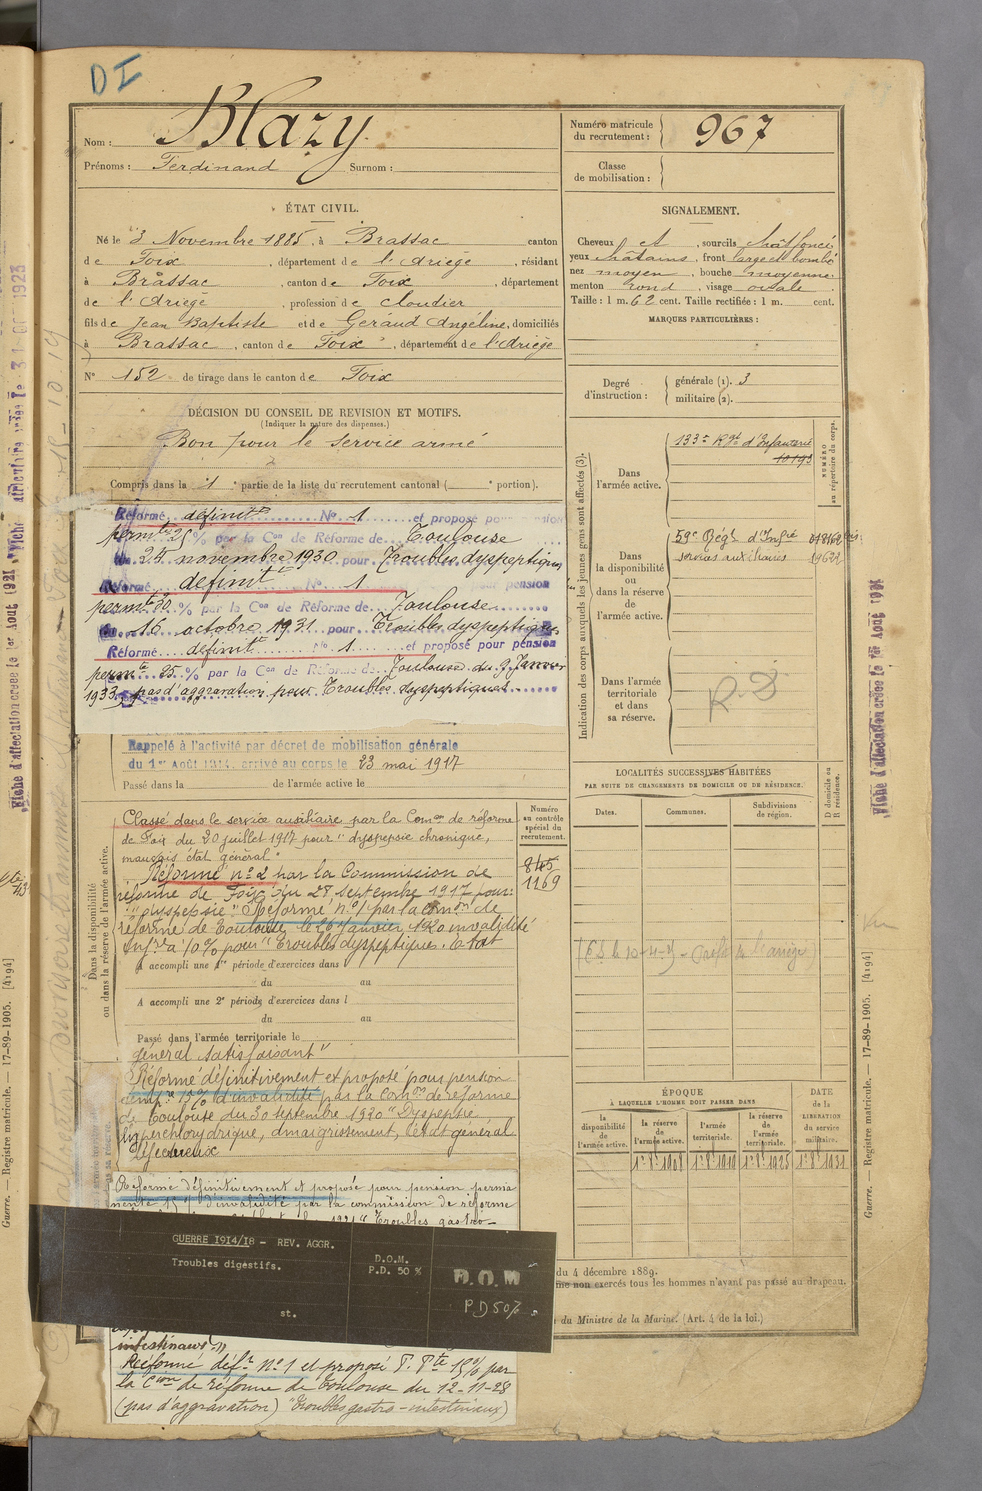 DI
Nom : Blazy
Prénoms : Ferdinand Surnom :
Numéro matricule du recrutement : 967
Classe de mobilisation :
ÉTAT CIVIL.
Né le 3 Novembre 1885, à Brassac canton
de Foix, département de l'Ariège, résidant
à Brassac, canton de Foix, département
de l'Ariège, profession de cloutier
fils de Jean Baptiste et de Géraud Angéline, domiciliés
à Brassac, canton de Foix, département de l'Ariège
N° 152 de tirage dans le canton de Foix
SIGNALEMENT.
Cheveux et, sourcils chât foncé
yeux châtains, front large et bombé
nez moyen, bouche moyenne
menton rond, visage ovale
Taille : 1 m. 62 cent. Taille rectifiée : 1 m. cent.
MARQUES PARTICULIÈRES :
Degré d'instruction : générale (1). 3
militaire (2).
DÉCISION DU CONSEIL DE REVISION ET MOTIFS.
(Indiquer la nature des dispenses.)
Bon pour le service armé
Compris dans la 1e partie de la liste du recrutement cantonal ( portion).
Réformé définitt N° 1 et proposé pour pension
permte 25 % par la Con de Réforme de Toulouse
du 24 novembre 1930 pour Troubles dyspeptiques
Réformé définitt N° 1 pour pension
permte 30 % par la Con de Réforme de Toulouse
du 16 octobre 1931 pour Troubles dyspeptiques
Réformé définitt N° 1 et proposé pour pension
permte 35 % par la Con de Réforme de Toulouse du 9 Janvier
1933, pas d'aggravation pour Troubles dyspeptiques
Rappelé à l'activité par décret de mobilisation générale
du 1er Août 1914. arrivé au corps le 23 mai 1917
Passé dans la de l'armée active le
Numéro au contrôle spécial du recrutement.
845
1169
Dans la disponibilité ou dans la réserve de l'armée active.
Classé dans le service auxiliaire par la Comon de réforme
de Foix du 20 juillet 1917 pour "dyspepsie chronique,
mauvais état général"
Réformé n° 2 par la Commission de
réforme de Foix du 28 septembre 1917 pour :
"dyspepsie" Réformé n° 1 par la Comon de
réforme de Toulouse le 26 janvier 1920 invalidité
infre à 10 % pour "Troubles dyspeptiques, état
A accompli une 1re période d'exercices dans
du au
A accompli une 2e période d'exercices dans l
du au
Passé dans l'armée territoriale le
général satisfaisant"
Réformé définitivement et proposé pour pension
temp.re 15 % d'invalidité par la Comon de réforme
de Toulouse du 30 septembre 1920 "Dyspepsie
hyperchlorydrique, amaigrissement, état général
défectueux
Réformé définitivement et proposé pour pension perma
nente 15 % d'invalidité par la commission de réforme
1921 "Troubles gastro-
GUERRE 1914/18 - REV. AGGR.
Troubles digestifs.
st.
D.O.M.
P.D. 50 %
D.O.M
P D 50%
intestinaux"
Réformé déft n° 1 et proposé P. Pte 15 % par
la Cion de réforme de Toulouse du 12-11-28
(pas d'aggravation) "Troubles gastro-intestinaux)
Indication des corps auxquels les jeunes gens sont affectés (3).
NUMÉRO au répertoire du corps.
Dans l'armée active.
133e Rgt d'Infanterie
10193
Dans la disponibilité ou dans la réserve de l'armée active.
59e Régt d'Infie
services auxiliaires 19622
Dans l'armée territoriale et dans sa réserve.
R.D
LOCALITÉS SUCCESSIVES HABITÉES
PAR SUITE DE CHANGEMENTS DE DOMICILE OU DE RÉSIDENCE.
Dates.
Communes.
Subdivisions de région.
D domicile ou R résidence.
ÉPOQUE
À LAQUELLE L'HOMME DOIT PASSER DANS
la disponibilité de l'armée active.
la réserve de l'armée active.
l'armée territoriale.
la réserve de l'armée territoriale.
DATE de la LIBÉRATION du service militaire.
du 4 décembre 1889.
exercés tous les hommes n'ayant pas passé au drapeau.
du Ministre de la Marine. (Art. 4 de la loi.)
Guerre. — Registre matricule. — 17-89-1905. [4194]
Guerre. — Registre matricule. — 17-89-1905. [4194]
Fiche d'affectation créée le 1er Août 1921
Fiche d'affectation créée le 1er Août 1921